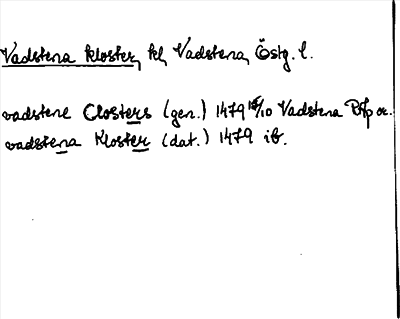 Vadstena kloster, kl, Vadstena, Östg. l.
vadstene Closters (gen.) 1479 15/10 Vadstena Pbf or.
vadstena Kloster (dat.) 1479 ib.